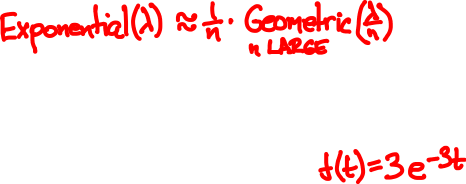 Exponential(λ) ≈ 1/n · Geometric(λ/n)
n LARGE
f(t)=3e^-3t